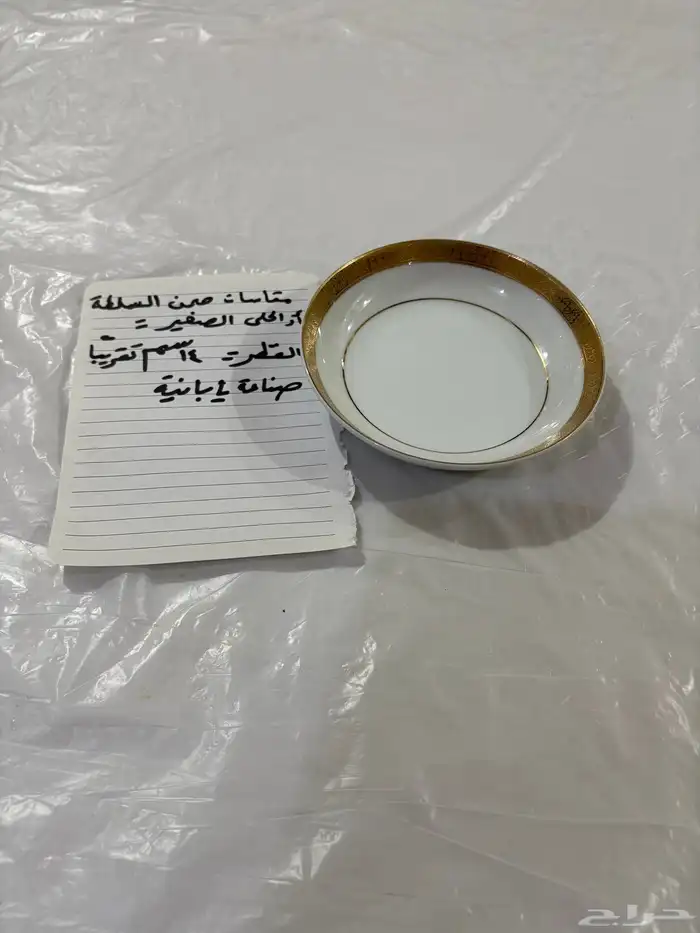 مقاسات صحن السلطة
أو الحلى الصغير =
القطر = ١٤ سم تقريباً
صناعة يابانية
حراج